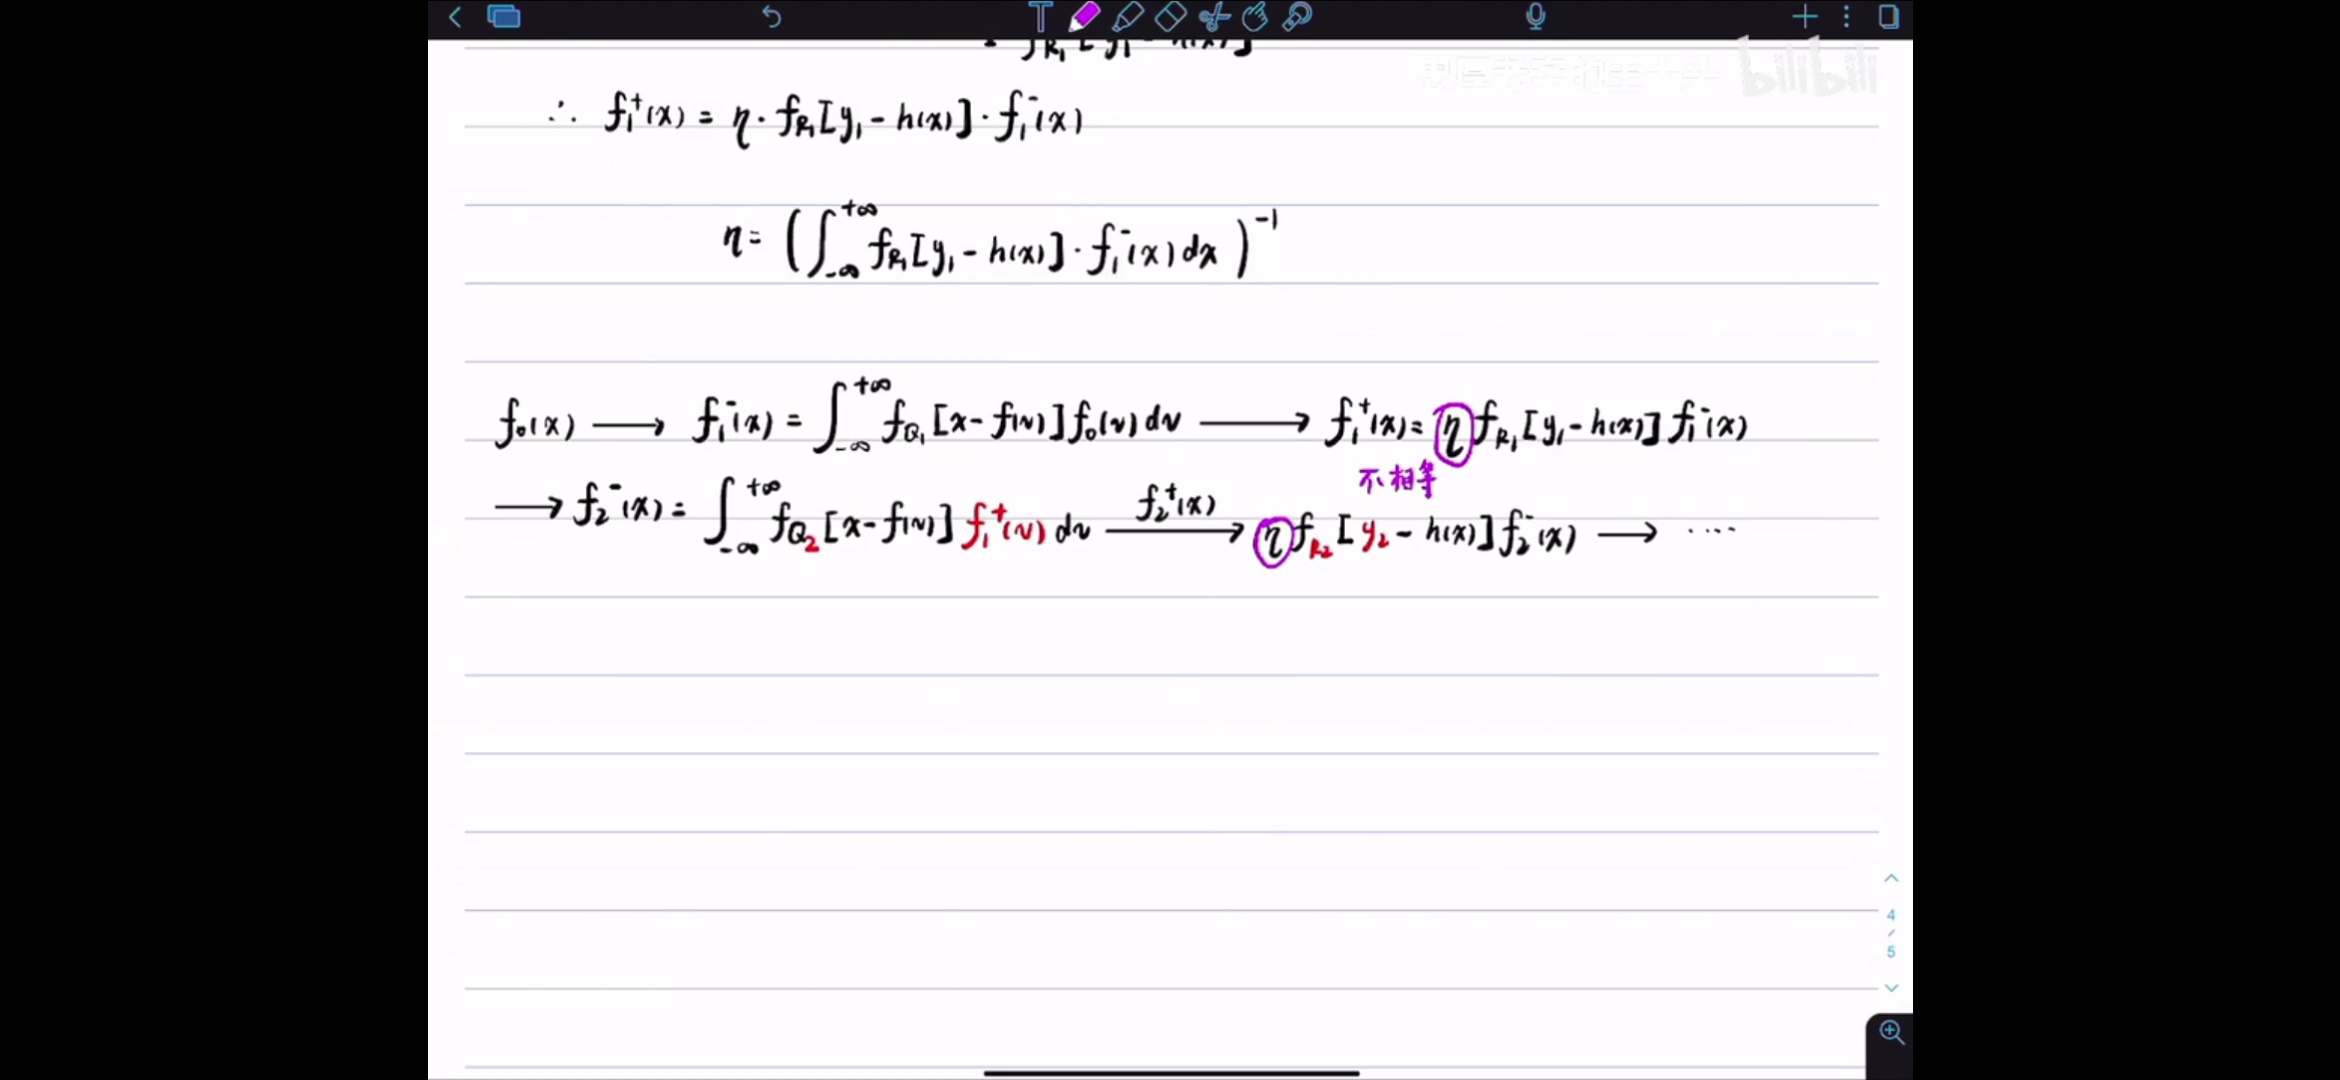 ∴ f₁⁺(x) = η · f_R₁[y₁ - h(x)] · f₁⁻(x)
η = (∫_{-∞}^{+∞} f_R₁[y₁ - h(x)] · f₁⁻(x) dx)⁻¹
f₀(x) ⟶ f₁⁻(x) = ∫_{-∞}^{+∞} f_Q₁[x - f(v)] f₀(v) dv ⟶ f₁⁺(x) = η f_R₁[y₁ - h(x)] f₁⁻(x)
不相等
⟶ f₂⁻(x) = ∫_{-∞}^{+∞} f_Q₂[x - f(v)] f₁⁺(v) dv ⟶ f₂⁺(x) η f_R₂[y₂ - h(x)] f₂⁻(x) ⟶ ····
bilibili
4
/
5